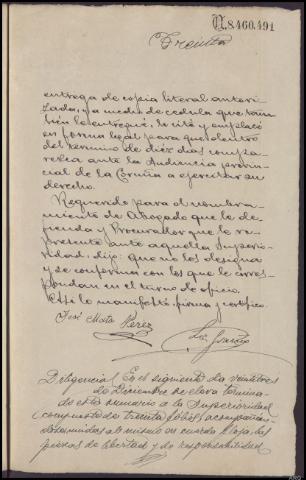 N.8.460.491
Treinta
entrega de copia literal autori-
zada, y a medio de cedula que tam-
bién le entregué, le cité y emplacé
en forma legal para que dentro
del termino de diez dias compa-
rezca ante la Audiencia provin-
cial de la Coruña a ejercitar su
derecho.
Requerido para el nombra-
miento de Abogado que le de-
fienda y Procurador que le re-
presente ante aquella Superio-
ridad, dijo: que no los designa
y se conforma con los que le corres-
pondan en el turno de oficio.
Así lo manifestó, firma y certifico.
José Mata Perez
Diligencia/ En el siguiente dia veintitres
de Diciembre se eleva termina-
do este sumario a la Superioridad
compuesto de treinta folios, acompañan-
dose unidas al mismo en cuerda floja, las
piezas de libertad y de responsabilidad.